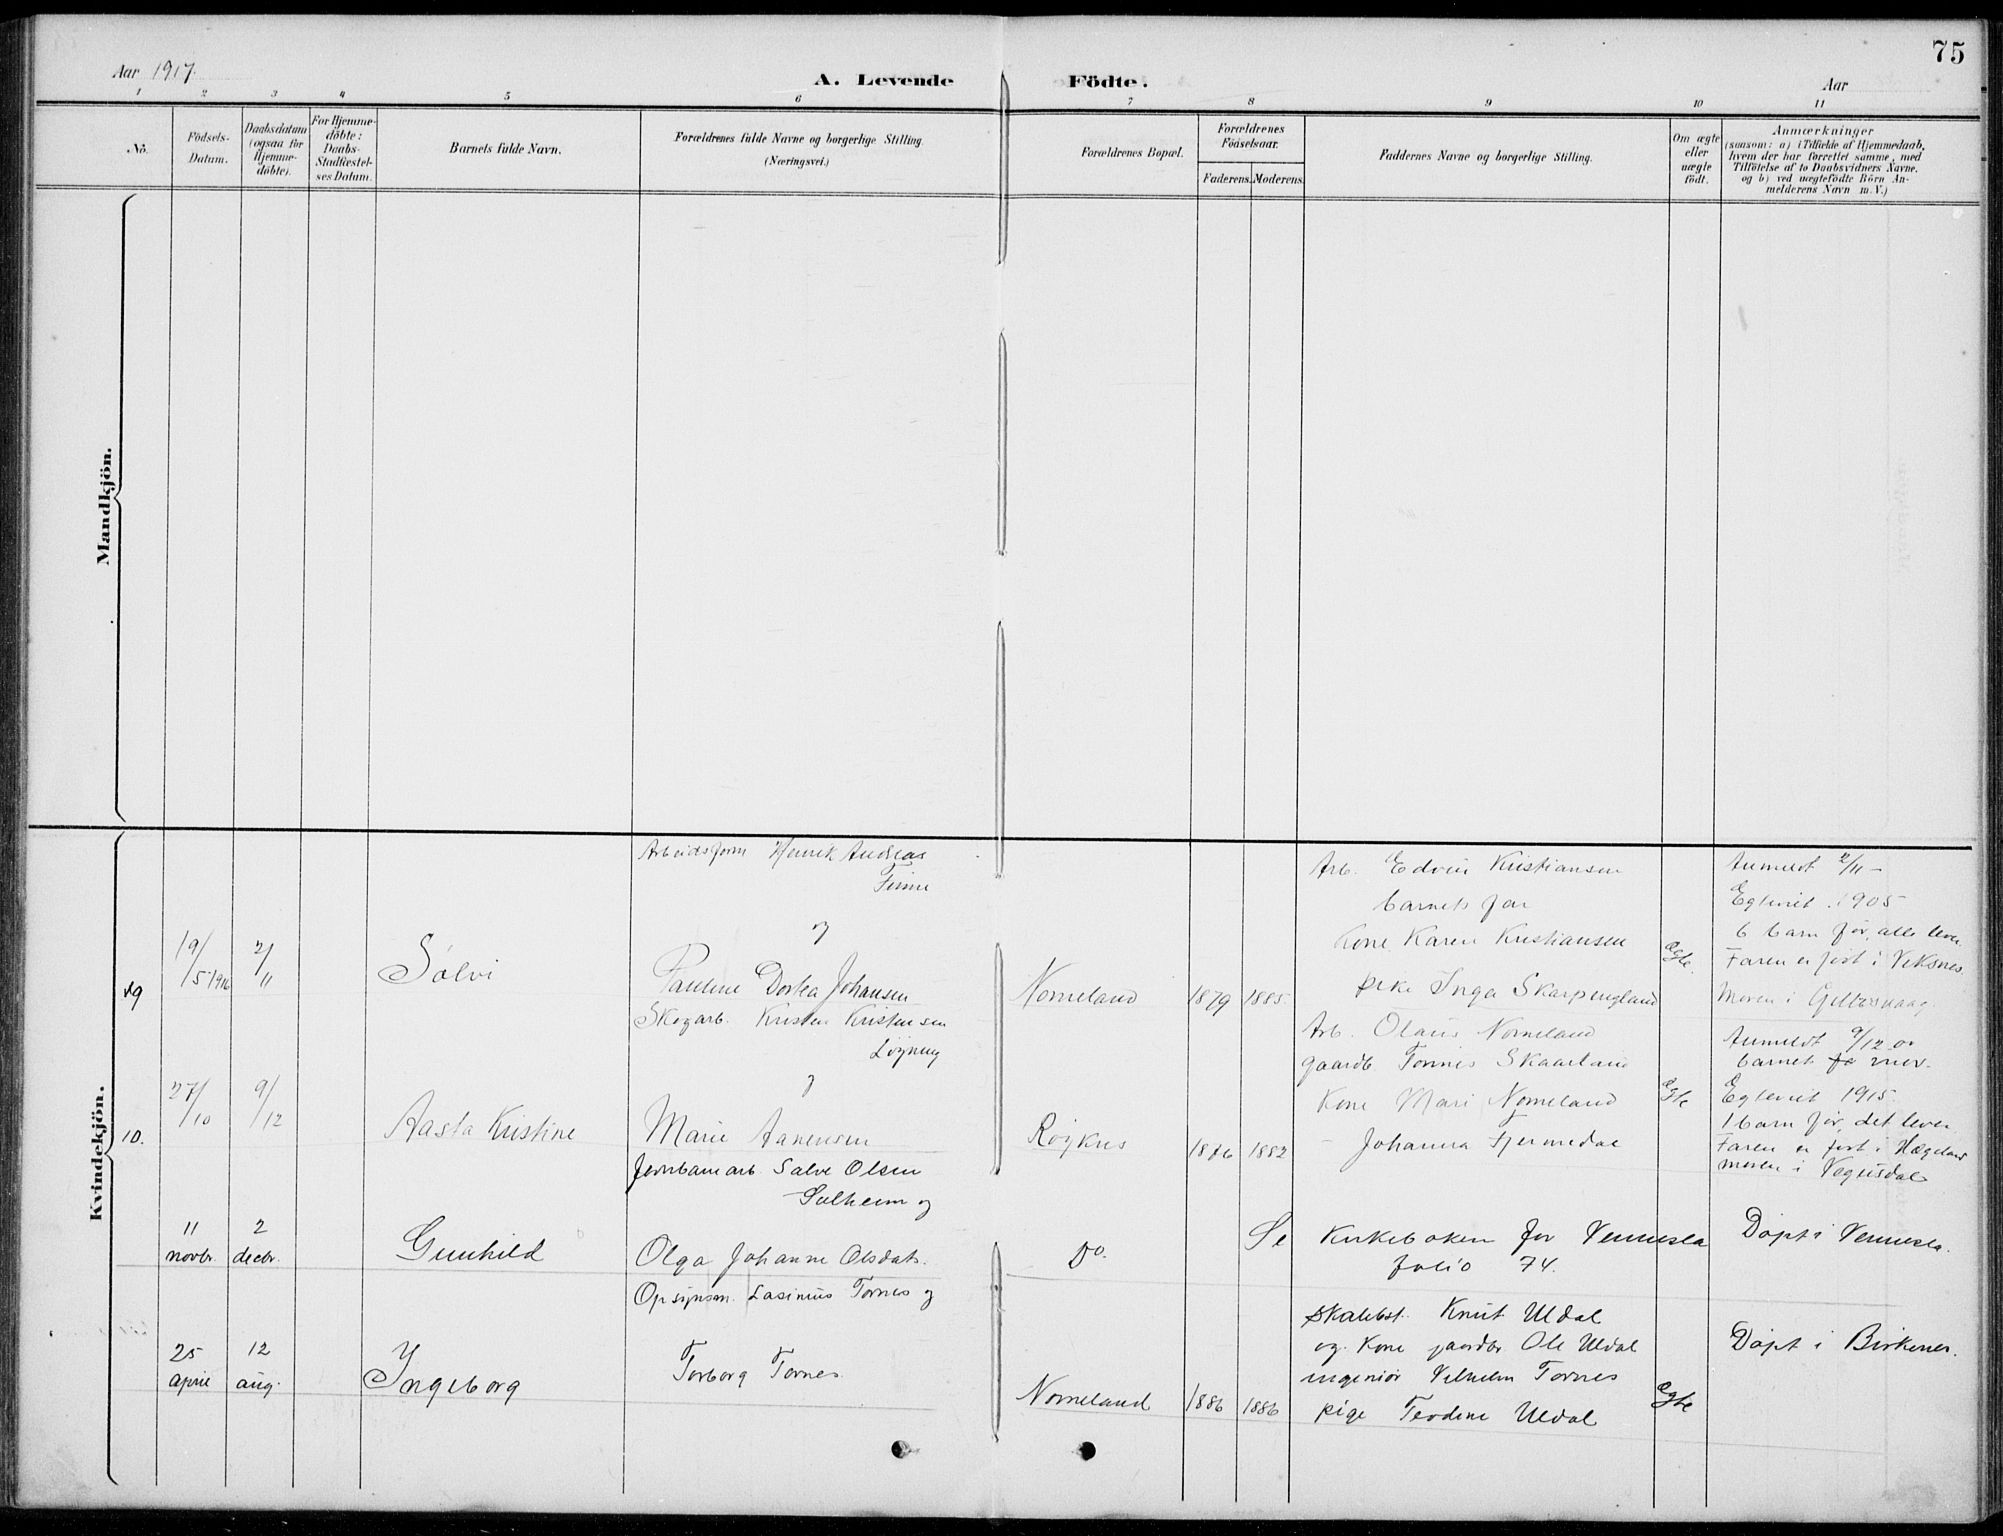 75
Aar 1917.
A. Levende Födte.
Aar
1 2 3 4 5 6 7 8 9 10 11
No.
Födsels-
Datum.
Daabsdatum
(ogsaa for
Hjemme-
döbte).
For Hjemme-
döbte:
Daabs-
Stadfæstel-
ses Datum.
Barnets fulde Navn.
Forældrenes fulde Navne og borgerlige Stilling.
(Næringsvei.)
Forældrenes Bopæl.
Forældrenes
Födselsaar.
Faderens. Moderens.
Faddernes Navne og borgerlige Stilling.
Om ægte
eller
uægte
födt.
Anmærkninger
(saasom: a) i Tilfælde af Hjemmedaab,
hvem der har forrettet samme, med
Tilföielse af to Daabsvidners Navne,
og b) ved uægtefödte Börn An-
melderens Navn m. V.)
Mandkjön.
Kvindekjön.
9
19/5 1916
2/11
Sølvi
Arbeidsform Henrik Andreas
Finne
og
Pauline Dortea Johansen
Nomeland
1879 1885
Arb. Edvin Kristiansen
barnets far
Kone Karen Kristiansen
pike Inga Skarpengland
Ægte.
Anmeldt 2/11 -
Egteviet 1905
6 barn før, alle lever
Faren er født i Veksnes
Moren i
10.
27/10
9/12
Aasta Kristine
Skogarb. Kristen Kristensen
Løyning
og
Marie Aanensen
Røyknes
1876 1882
Arb. Olaus Nomeland
gaardb. Tomes Skaarland
Kone Mari Nomeland
- Johanna Fjermedal
Ægte
Anmeldt 9/12 av
barnets mor.
Egteviet 1915.
1 barn før, det lever
Faren er født i Hægeland
moren i Vegusdal
11
novbr.
2
decbr.
Gunhild
Jernbanearb. Salve Olsen
Solheim og
Olga Johanne Olsdatr.
Do.
Se Kirkeboken for Vennesla
folio 74.
Døpt i Vennesla.
25
april
12
aug.
Ingeborg
Opsynsm. Lasinius Tornes og
Torborg Tornes.
Nomeland
1886 1886
Skalebst. Knut Uldal
og Kone gaardbr Ole Uldal
ingeniør Vilhelm Tornes
pige Teodine Uldal
Ægte
Døpt i Birkenes.